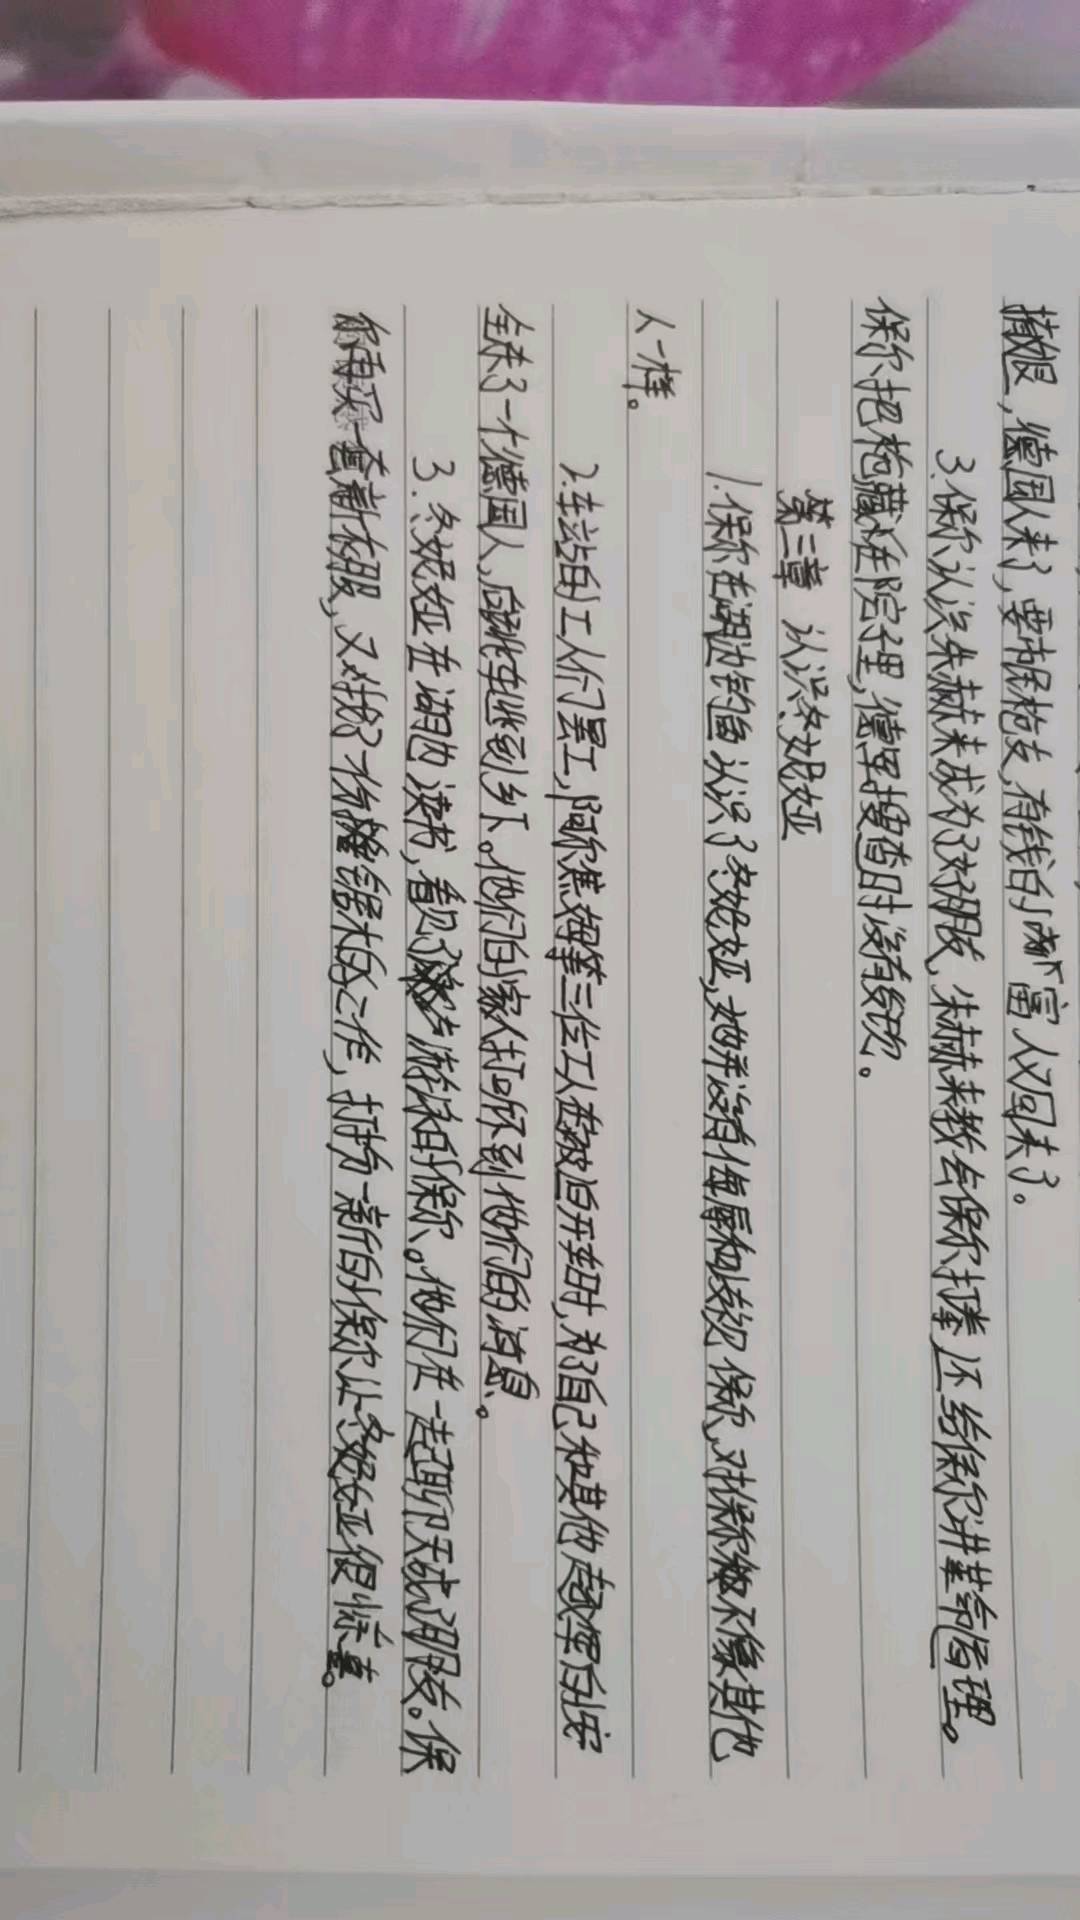 撤退，德国人来了，要市民枪支，有钱的富人又回来了。
3.保尔认识朱赫来成为了好朋友，朱赫来教会保尔打拳还给保尔讲革命道理。
保尔把枪藏在院子里，德军搜查时没有发现。
第三章 认识冬妮娅
1.保尔在湖边钓鱼认识了冬妮娅，她并没有侮辱和歧视保尔，对保尔不像其他
人一样。
2.车站的工人们罢工，阿尔焦姆等三位工人在被迫开车时，为了自己和其他 的安
全杀了一个德国人，后 到乡下。他们的家人打听不到他们的消息。
3.冬妮娅在湖边读书，看见了 游泳的保尔。他们在一起聊天成朋友。保
尔再买一套新衣服，又找了一份 锯木的工作，打扮一新的保尔让冬妮娅很惊喜。